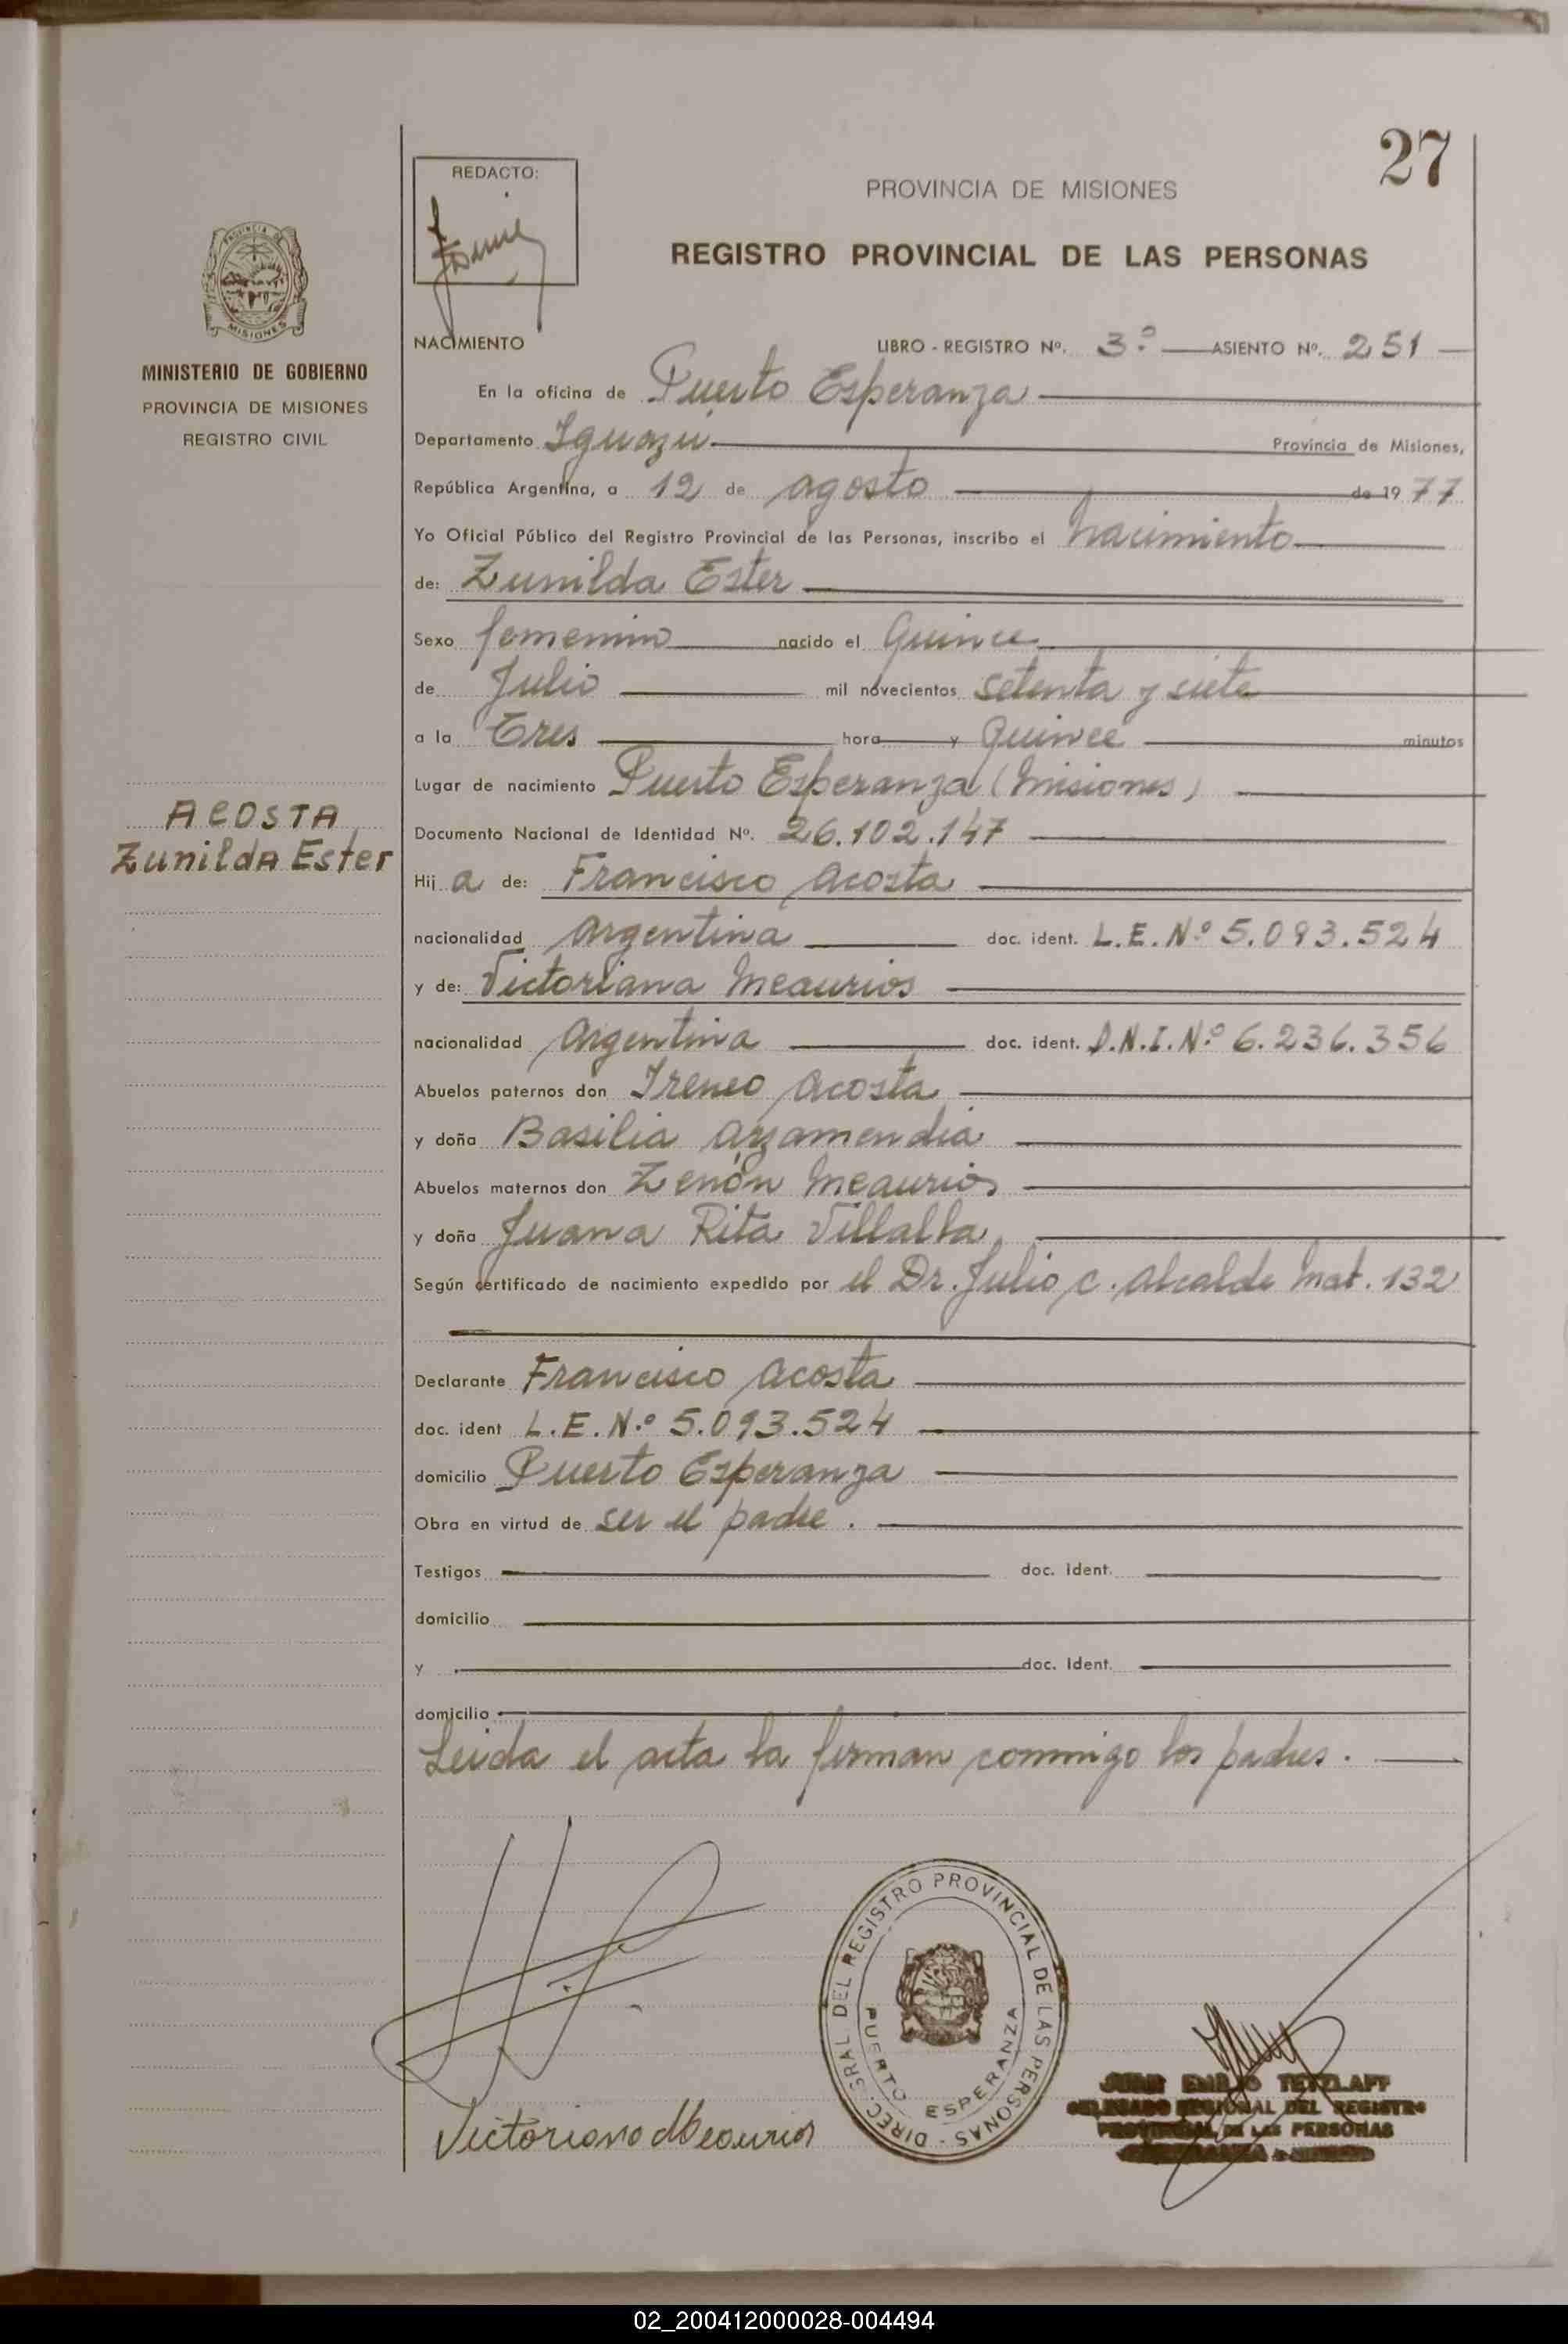 27
REDACTO:
PROVINCIA DE MISIONES
REGISTRO PROVINCIAL DE LAS PERSONAS
PROVINCIA DE
MISIONES
MINISTERIO DE GOBIERNO
PROVINCIA DE MISIONES
REGISTRO CIVIL
NACIMIENTO LIBRO - REGISTRO Nº. 3º ASIENTO Nº. 251
En la oficina de Puerto Esperanza
Departamento Iguazu Provincia de Misiones,
República Argentina, a 12 de agosto de 1977
Yo Oficial Público del Registro Provincial de las Personas, inscribo el nacimiento
de: Zunilda Ester
Sexo femenino nacido el Quince
de Julio mil novecientos setenta y siete
a la Tres hora y Quince minutos
Lugar de nacimiento Puerto Esperanza (Misiones)
ACOSTA
Zunilda Ester
Documento Nacional de Identidad Nº. 26.102.147
Hij a de: Francisco Acosta
nacionalidad Argentina doc. ident. L.E.Nº 5.093.524
y de: Victoriana Meaurios
nacionalidad Argentina doc. ident. D.N.I.Nº 6.236.356
Abuelos paternos don Ireneo Acosta
y doña Basilia Arzamendia
Abuelos maternos don Zenón Meaurios
y doña Juana Rita Villalba
Según certificado de nacimiento expedido por el Dr. Julio C. Alcalde Mat. 132
Declarante Francisco Acosta
doc. ident L.E.Nº 5.093.524
domicilio Puerto Esperanza
Obra en virtud de ser el padre.
Testigos doc. ident.
domicilio
y doc. ident.
domicilio
Leida el acta la firman conmigo los padres.
DIREC. GRAL DEL REGISTRO PROVINCIAL DE LAS PERSONAS -
PUERTO ESPERANZA
Victoriana Meaurios
JUAN EMILIO TETZLAFF
DELEGADO REGIONAL DEL REGISTRO
PROVINCIAL DE LAS PERSONAS
02_200412000028-004494